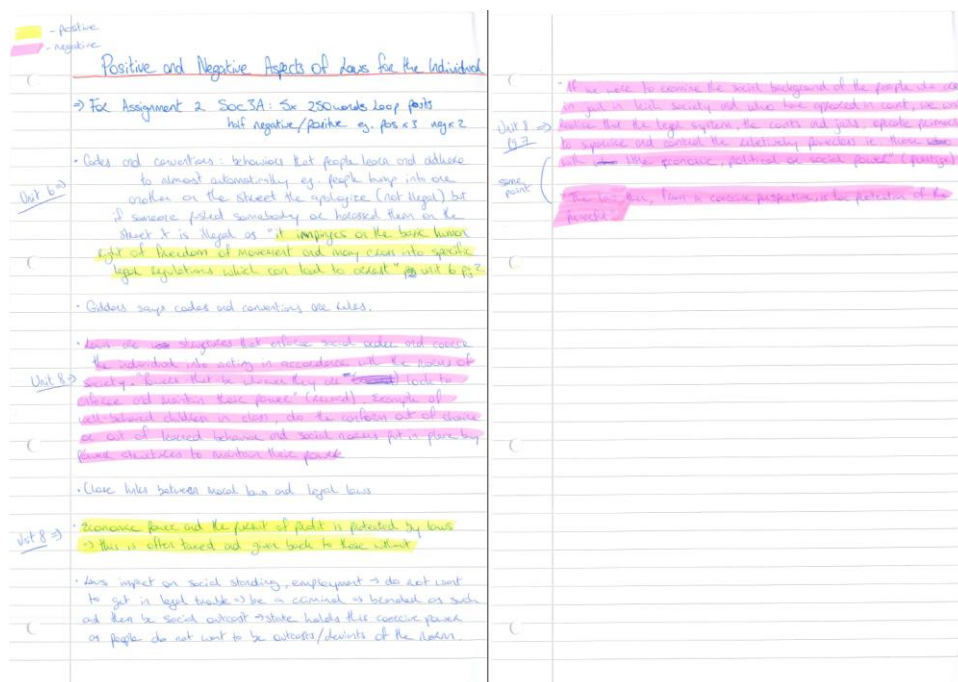 - positive
- negative
Positive and Negative Aspects of Laws for the Individual
=> For Assignment 2 Soc3A: 5x 250words Loop posts
half negative/positive eg. pos x 3 neg x 2
Unit 6 =>
• Codes and conventions: behaviours that people learn and adhere
to almost automatically eg. people bump into one
another on the street the apologize (not illegal) but
if someone pushed somebody or harassed them on the
street it is illegal as "it impinges on the basic human
right of freedom of movement and may clash into specific
legal regulations which can lead to arrest" unit 6 pg 2
• Giddens says codes and conventions are rules.
Unit 8 =>
• Laws are structures that enforce social order and coerce
the individual into acting in accordance with the norms of
society. "Powers that be whoever they are" look to
enforce and maintain their power" Example of
well behaved children in class, do the conform out of choice
or out of learned behaviour and social norms put in place by
power structures to maintain their power
• Close links between moral laws and legal laws
Unit 8 =>
• Economic power and the pursuit of profit is protected by laws
-> this is often taxed and given back to those without
• Laws impact on social standing, employment -> do not want
to get in legal trouble => be a criminal => branded as such
and then be social outcast -> state holds this coercive power
as people do not want to be outcasts/deviants of the norm.
Unit 8 =>
pg 7
• If we were to examine the social background of the people who are
in jail in Irish society and who have appeared in court, we would
realise that the legal system, the courts and jails, operate primarily
to supervise and control the relatively powerless ie those
with little economic, political or social power" (prestige)
same
point
The law then, from a coercive perspective, is the protection of the
powerful.